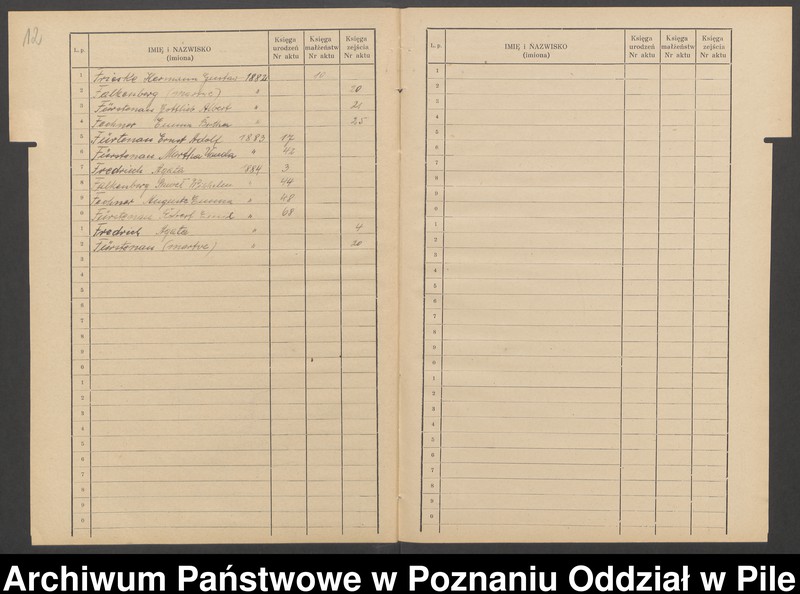 12
L. p. IMIĘ i NAZWISKO (imiona) Księga urodzeń Nr aktu Księga małżeństw Nr aktu Księga zejścia Nr aktu
1 Frieske Hermann Gustav 1882 10
2 Falkenberg (martwe) " 20
3 Fürstenau Gottlieb Albert " 21
4 Fechner Emma Bertha " 25
5 Fürstenau Ernst Adolf 1883 17
6 Fürstenau Martha " 42
7 Fredrich Agata 1884 3
8 Falkenberg Wilhelm " 44
9 Fechner Auguste Emma " 48
0 Fürstenau Emil " 68
1 Fredrich Agata " 4
2 Fürstenau (martwe) " 20
3
4
5
6
7
8
9
0
1
2
3
4
5
6
7
8
9
0
L. p. IMIĘ i NAZWISKO (imiona) Księga urodzeń Nr aktu Księga małżeństw Nr aktu Księga zejścia Nr aktu
1
2
3
4
5
6
7
8
9
0
1
2
3
4
5
6
7
8
9
0
1
2
3
4
5
6
7
8
9
0
Archiwum Państwowe w Poznaniu Oddział w Pile